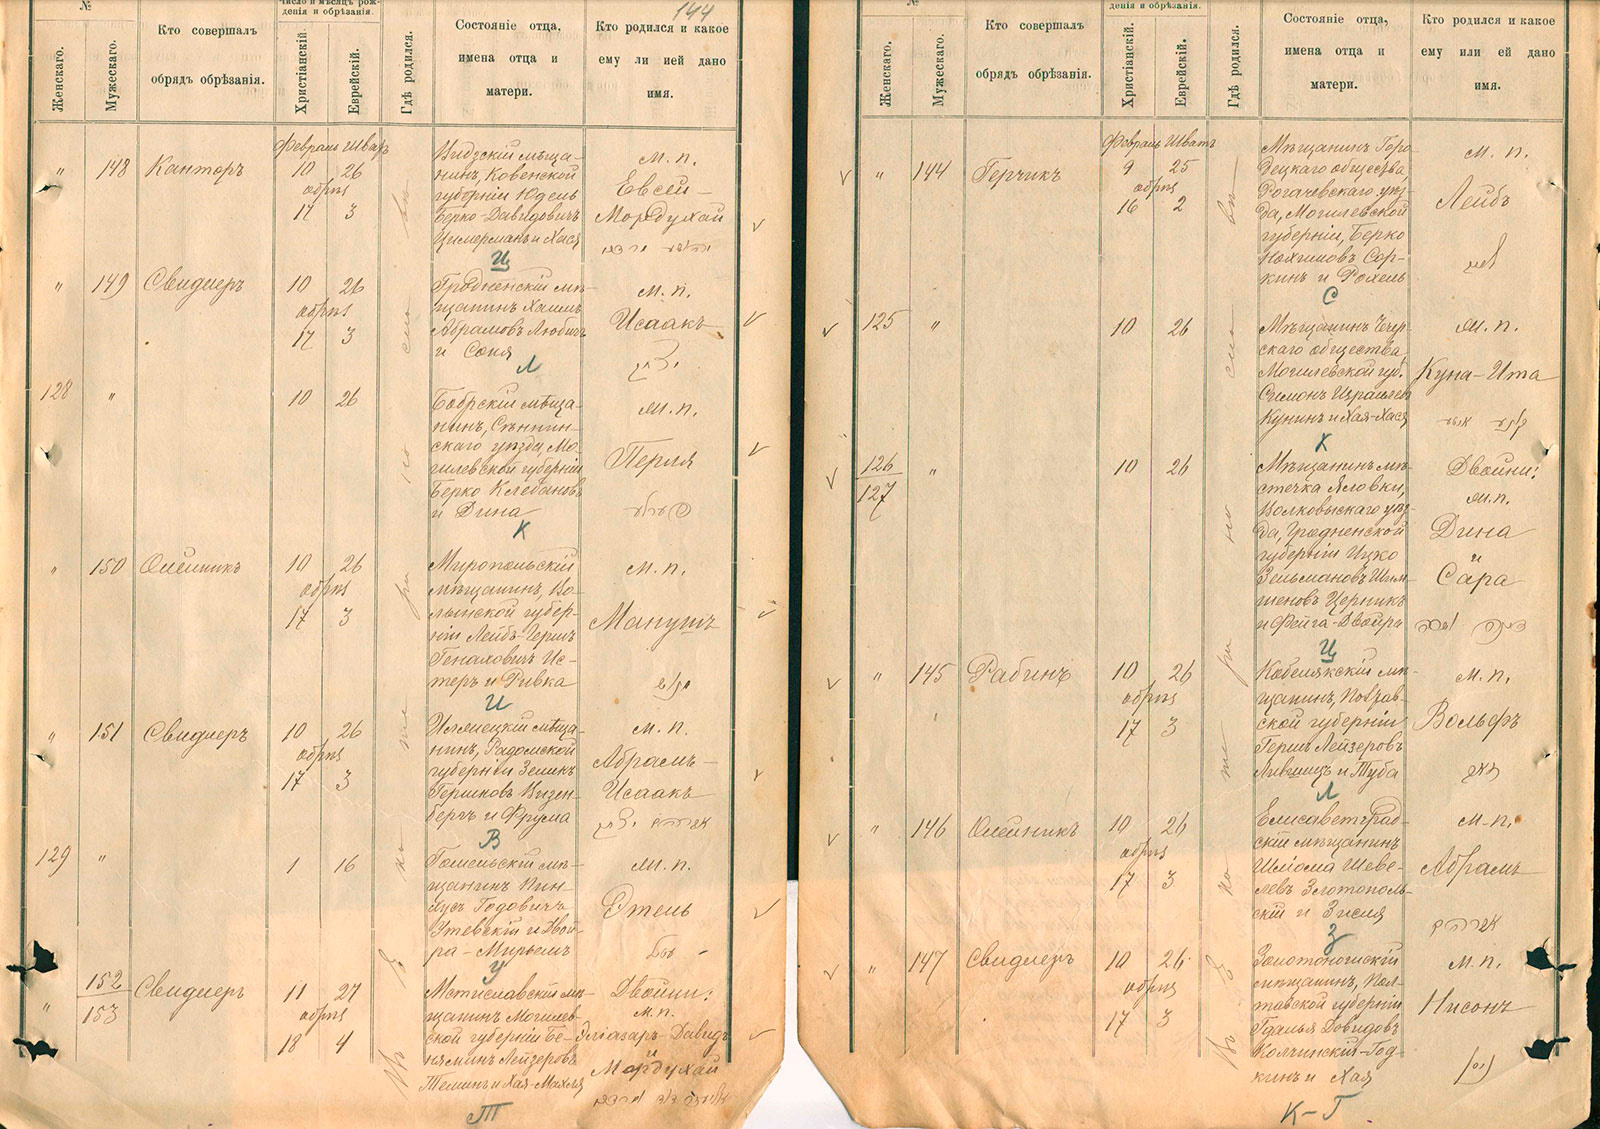 144
№
Число и мѣсяцъ рож-
денія и обрѣзанія.
Женскаго.
Мужескаго.
Кто совершалъ
обрядъ обрѣзанія.
Христіанскій.
Еврейскій.
Гдѣ родился.
Состояніе отца,
имена отца и
матери.
Кто родился и какое
ему ли ией дано
имя.
Февраль Шват
" 148 Канторъ 10 26
обрѣз
17 3
Видзскій мѣща-
нинъ, Ковенской
губерніи Юдель
Берко-Давидовичъ
Цимерманъ и Хася
м. п.
Евсей-
Мордухай
Ц
" 149 Свидлеръ 10 26
обрѣз
17 3
Гродненскій мѣ-
щанинъ
Абрамовъ Любичъ
и Соня
м. п.
Исаакъ
יצחק
Л
128 " 10 26
Бобрскій мѣща-
нинъ, Сѣннин-
скаго уѣзда, Мо-
гилевской губерніи
Берко Клебановъ
и Дина
м. п.
Перля
פערלע
К
" 150 Олейникъ 10 26
обрѣз
17 3
Миропольскій
мѣщанинъ, Во-
лынской губер-
ніи Лейбъ-Гершъ
Генахович Ис-
теръ и Ривка
м. п.
Манушъ
И
" 151 Свидлеръ 10 26
обрѣз
17 3
мѣща-
нинъ, Радомской
губерніи Зеликъ
Гершковъ Визен-
бергъ и Фрума
м. п.
Абрамъ-
Исаакъ
אברהם יצחק
В
129 " 1 16
Гомельскій мѣ-
щанинъ Пин-
хусъ Годовичъ
Утевскій и Двой-
ра-Мирьемъ
м. п.
Этель
עטל
У
" 152
153 Свидлеръ 11 27
обрѣз
18 4
Мстиславскій мѣ-
щанинъ Могилев-
ской губерніи Бе-
няминъ Лейзеровъ
Теминъ и Хая-Махля
Двойни:
м. п.
Эліазаръ-Давидъ
и
Мордухай
Т
Въ Екатеринославѣ
№
денія и обрѣзанія.
Женскаго.
Мужескаго.
Кто совершалъ
обрядъ обрѣзанія.
Христіанскій.
Еврейскій.
Гдѣ родился.
Состояніе отца,
имена отца и
матери.
Кто родился и какое
ему или ей дано
имя.
Февраль Шватъ
" 144 Герчикъ 9 25
обрѣз
16 2
Мѣщанинъ Горо-
децкаго общества
Рогачевскаго уѣз-
да, Могилевской
губерніи, Берко
Нохимовъ Сор-
кинъ и Рохель
м. п.
Лейбъ
לייב
С
125 " 10 26
Мѣщанинъ Чечер-
скаго общества,
Могилевской губ.
Симонъ Израилев
Кунинъ и Хая-Хася
м. п.
Куна-Ита
К
126
127 " 10 26
Мѣщанинъ мѣ-
стечка Яловки,
Волковыскаго уѣз-
да, Гродненской
губерніи Ицко
Зельмановъ Шим-
шеновъ Церникъ
и Фейга-Двойра
Двойни:
м. п.
Дина
и
Сара
Ц
" 145 Рабинъ 10 26
обрѣз
17 3
Кобелякскій мѣ-
щанинъ, Полтав-
ской губерніи
Гершъ Лейзеровъ
Лившицъ и Туба
м. п.
Вольфъ
זאב
Л
" 146 Олейникъ 10 26
обрѣз
17 3
Елисаветград-
скій мѣщанинъ
Шліома Шеве-
левъ Золотополь-
скій и Зисля
м. п.
Абрамъ
אברהם
З
" 147 Свидлеръ 10 26
обрѣз
17 3
Золотоношскій
мѣщанинъ, Пол-
тавской губерніи
Гдалья Довидовъ
Колчинскій-Год-
кинъ и Хая
м. п.
Нисонъ
ניסן
К-Г
Въ Екатеринославѣ